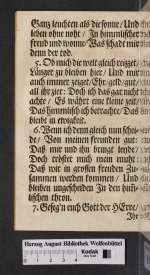 Ganz leuchten als die sonne / Und
leben ohne noht / In himmlischer
freud und wonne / Was schadt mir
denn der tod.
5. Ob mich die welt gleich reitzet /
Länger zu bleiben hier / Und mir
auch immer zeiget / Ehr / geld / gut /
all ihr zier: Doch ich das gar nicht
achte / Es währt eine kleine zeit /
Das himmlisch ich betrachte / Das
bleibt in ewigkeit.
6. Wenn ich denn gleich nun schei-
de / Von meinen freunden gut:
Daß mir und ihn bringt leyde /
Doch tröstet mich mein muht
Daß wir in grossen freuden Zu-
sammen werden kommen / Und
bleiben ungescheiden In den him-
lischen thron.
7. Gesegn euch Gott der HErre /
Ihr
Herzog August Bibliothek Wolfenbüttel